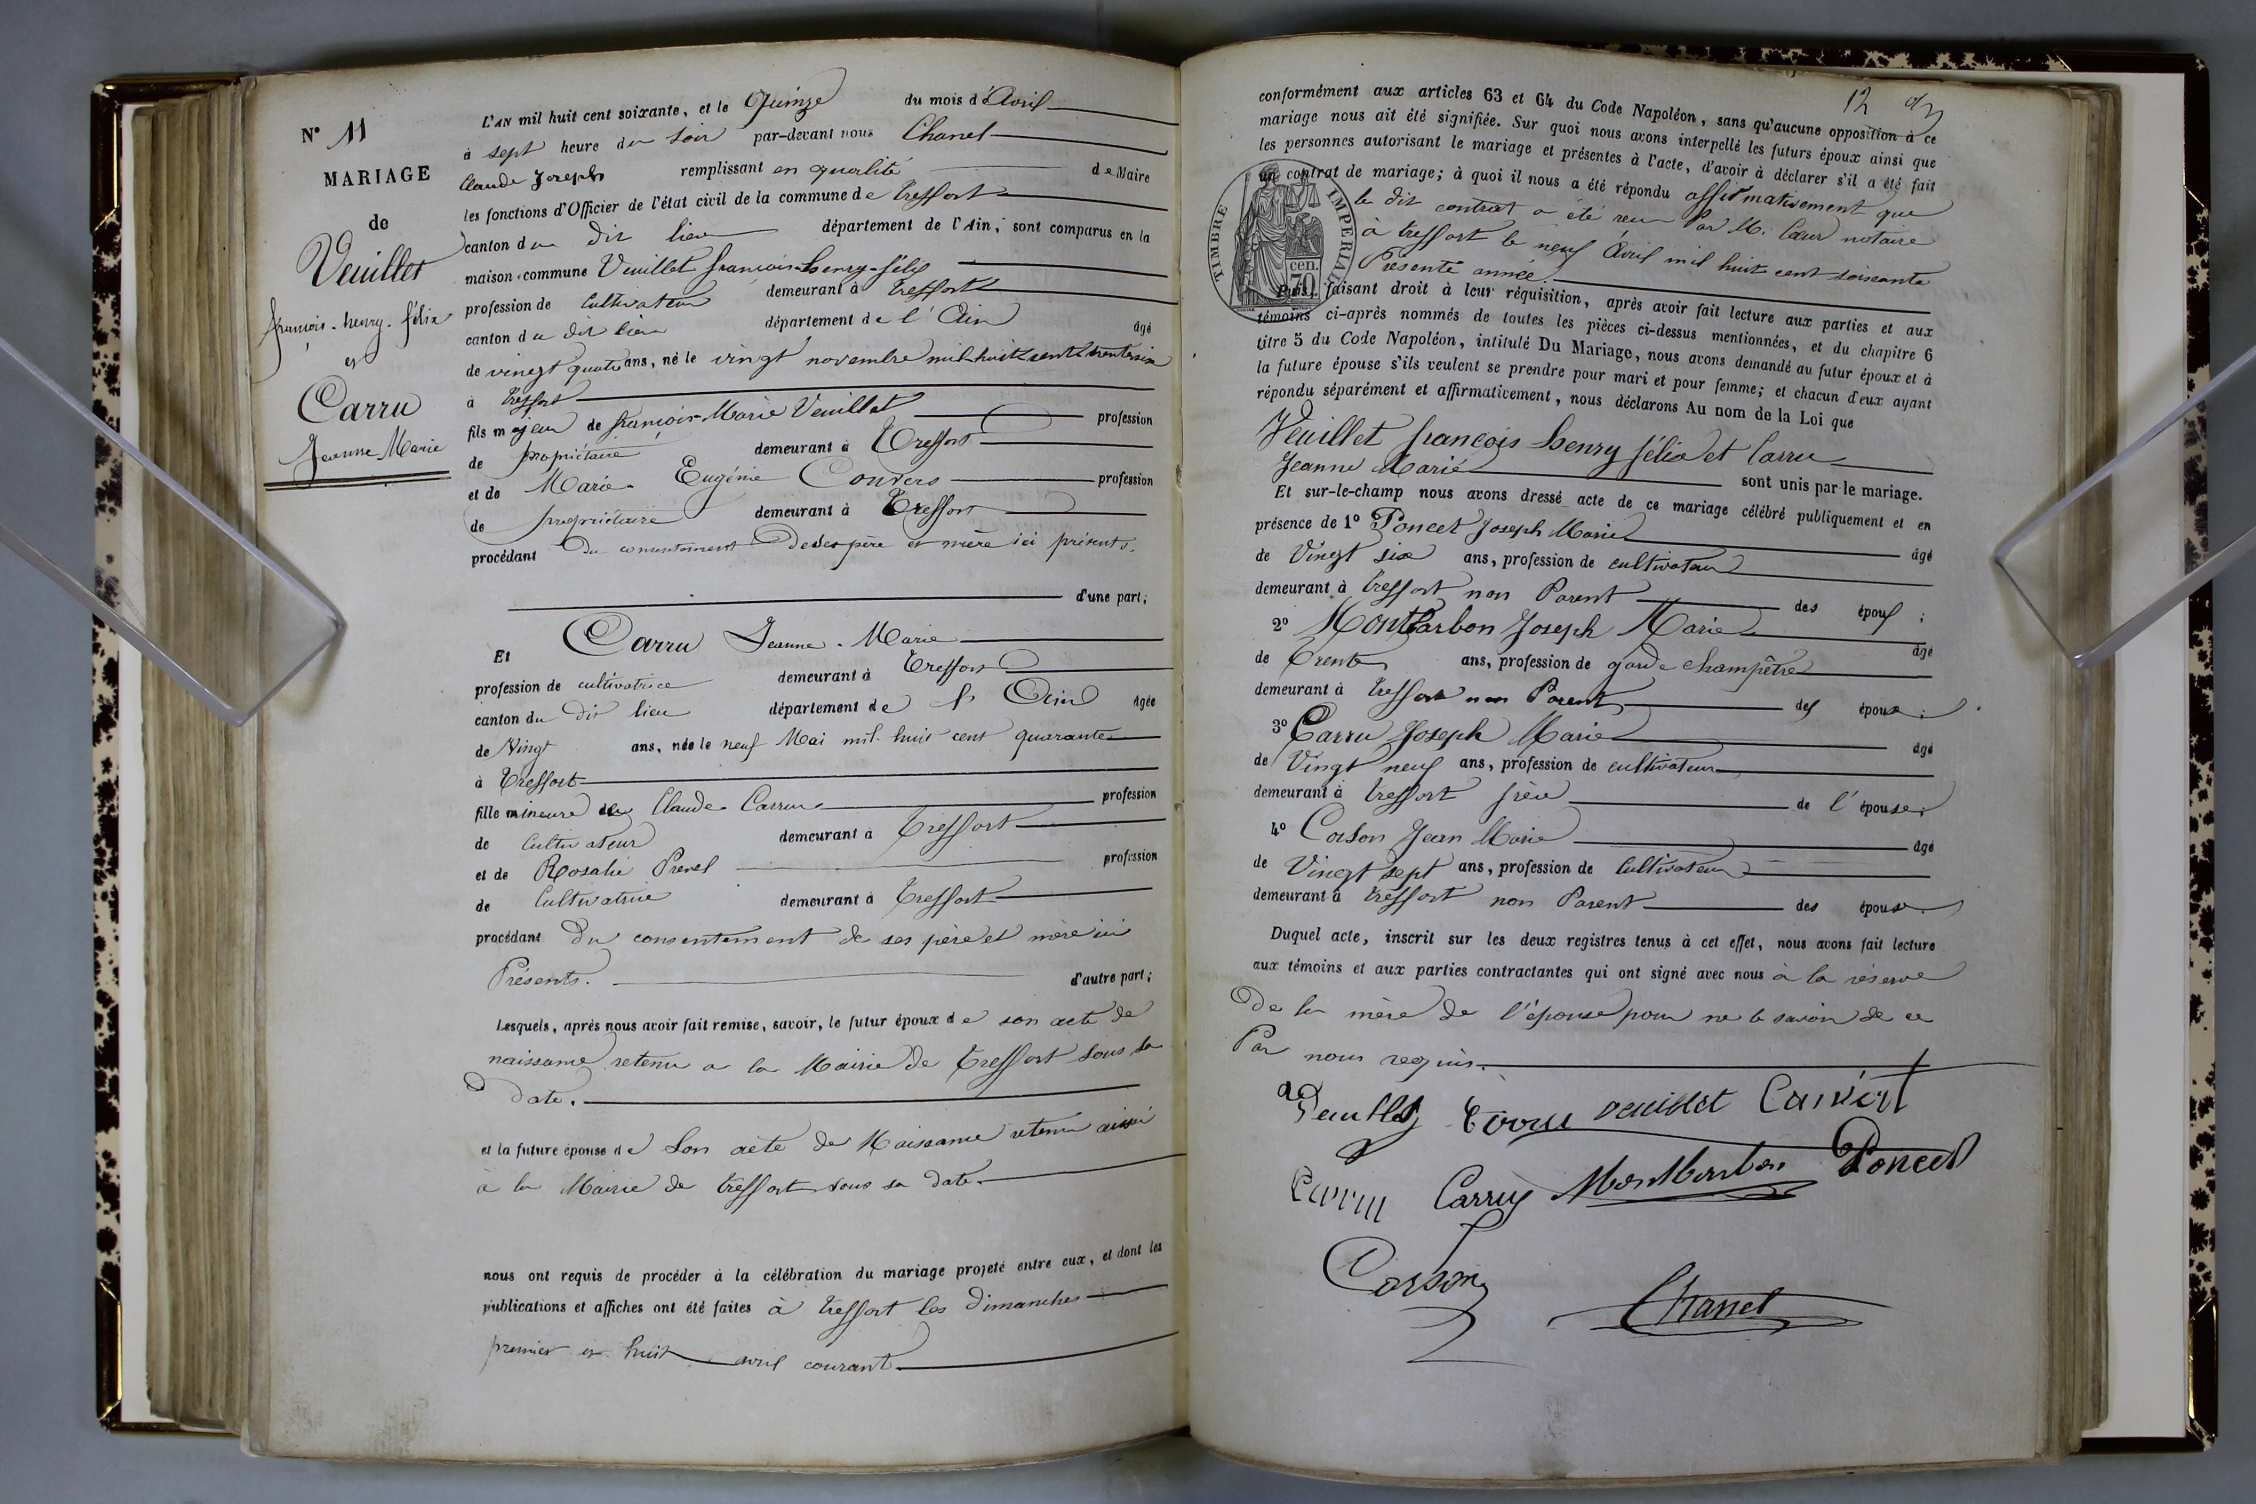 N° 11
MARIAGE
de
Veuillet
françois-henry-félix
et
Carru
Jeanne Marie
L'AN mil huit cent soixante, et le Quinze du mois d'Avril
à sept heure du soir par-devant nous Chanel
Claude Joseph remplissant en qualité de Maire
les fonctions d'Officier de l'état civil de la commune de Treffort
canton du dit lieu département de l'Ain; sont comparus en la
maison commune Veuillet françois-henry-félix
profession de Cultivateur demeurant à Treffort
canton du dit lieu département de l'Ain âgé
de vingt quatre ans, né le vingt novembre mil huit cent trente six
à Treffort
fils majeur de françois-Marie Veuillet profession
de propriétaire demeurant à Treffort
et de Marie-Eugénie Convers profession
de propriétaire demeurant à Treffort
procédant du consentement de ses père et mère ici présents.
d'une part;
Et Carru Jeanne-Marie
profession de cultivatrice demeurant à Treffort
canton du dit lieu département de l'Ain âgée
de Vingt ans, née le neuf Mai mil huit cent quarante
à Treffort
fille mineure de Claude Carru profession
de Cultivateur demeurant à Treffort
et de Rosalie Prevel profession
de Cultivatrice demeurant à Treffort
procédant du consentement de ses père et mère ici
Présents. d'autre part;
Lesquels, après nous avoir fait remise, savoir, le futur époux de son acte de
naissance retenu a la Mairie de Treffort sous sa
date.
et la future épouse de son acte de Naissance retenu aussi
à la Mairie de Treffort sous sa date.
nous ont requis de procéder à la célébration du mariage projeté entre eux, et dont les
publications et affiches ont été faites à Treffort les dimanches
premier et huit avril courant
12
conformément aux articles 63 et 64 du Code Napoléon, sans qu'aucune opposition à ce
mariage nous ait été signifiée. Sur quoi nous avons interpellé les futurs époux ainsi que
les personnes autorisant le mariage et présentes à l'acte, d'avoir à déclarer s'il a été fait
un contrat de mariage; à quoi il nous a été répondu affirmativement que
le dit contrat a été reçu Par M. notaire
à treffort le neuf Avril mil huit cent soixante
Présente année.
TIMBRE IMPERIAL
70 cen.
Puis, faisant droit à leur réquisition, après avoir fait lecture aux parties et aux
témoins ci-après nommés de toutes les pièces ci-dessus mentionnées, et du chapitre 6
titre 5 du Code Napoléon, intitulé Du Mariage, nous avons demandé au futur époux et à
la future épouse s'ils veulent se prendre pour mari et pour femme; et chacun d'eux ayant
répondu séparément et affirmativement, nous déclarons Au nom de la Loi que
Veuillet françois henry félix et Carru
Jeanne Marie sont unis par le mariage.
Et sur-le-champ nous avons dressé acte de ce mariage célébré publiquement et en
présence de 1° Poncet Joseph Marie âgé
de Vingt six ans, profession de cultivateur
demeurant à treffort non Parent des époux;
2° Montbarbon Joseph Marie âgé
de Trente ans, profession de garde champêtre
demeurant à treffort non Parent des époux;
3° Carru Joseph Marie âgé
de Vingt neuf ans, profession de cultivateur
demeurant à treffort frère de l'épouse;
4° Corson Jean Marie âgé
de Vingt sept ans, profession de Cultivateur
demeurant à treffort non Parent des époux.
Duquel acte, inscrit sur les deux registres tenus à cet effet, nous avons fait lecture
aux témoins et aux parties contractantes qui ont signé avec nous à la réserve
de la mère de l'épouse pour ne le savoir de ce
Par nous requis.
Carru veuillet
Carru Carru Montbarbon Poncet
Corson
Chanel